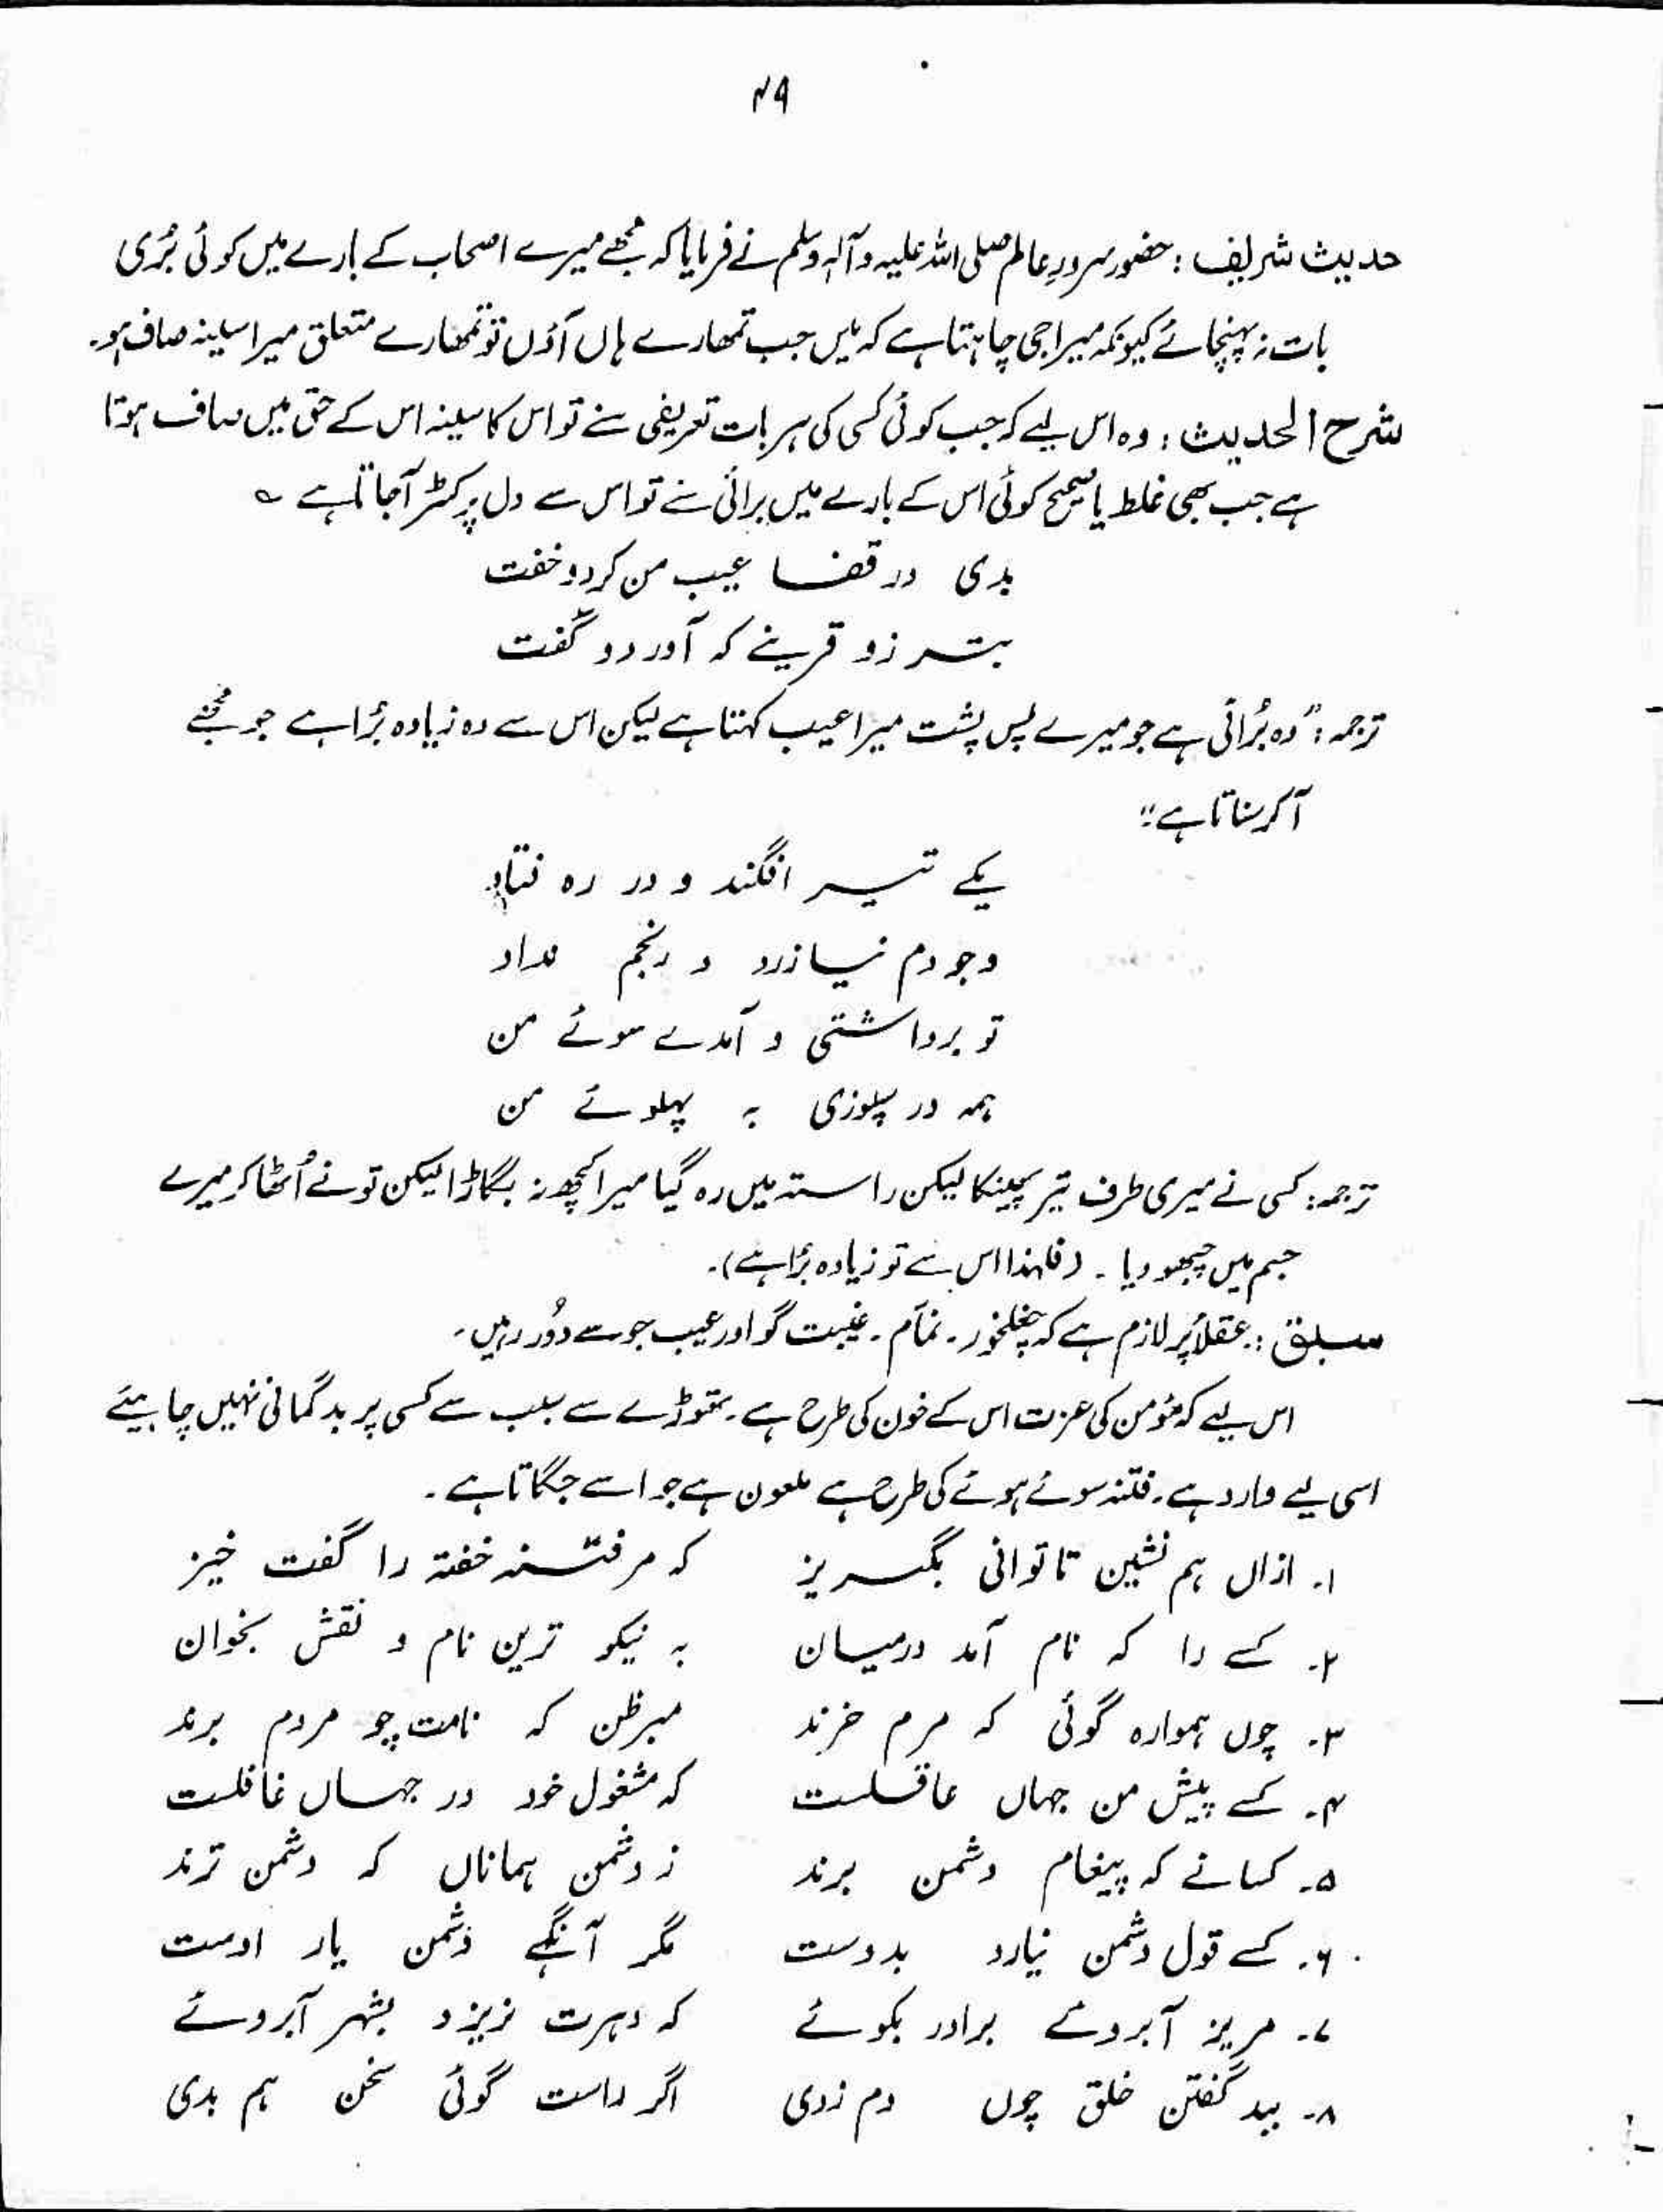 ۴۹
حدیث شریف : حضور سرورِ عالم صلی اللہ علیہ وآلہٖ وسلم نے فرمایا کہ مجھے میرے اصحاب کے بارے میں کوئی بُری
بات نہ پہنچائے کیونکہ میرا جی چاہتا ہے کہ میں جب تمھارے ہاں آؤں تو تمھارے متعلق میرا سینہ صاف ہو۔
شرح الحدیث : وہ اس لیے کہ جب کوئی کسی کی ہر بات تعریفی سنے تو اس کا سینہ اس کے حق میں صاف ہوتا
ہے جب بھی غلط یا صحیح کوئی اس کے بارے میں برائی سنے تو اس سے دل پر کٹر آجاتا ہے ؎
بدی در قفا عیب من کرد و خفت
بتر زو قرینے کہ آورد و گفت
ترجمہ : "وہ بُرائی ہے جو میرے پس پشت میرا عیب کہتا ہے لیکن اس سے وہ زیادہ بُرا ہے جو مجھے
آکر سناتا ہے"
یکے تیر افگند و در رہ فتاد
وجودم نیازرد و رنجم نداد
تو برداشتی و آمدے سوئے من
ہمہ در سپوزی بہ پہلوئے من
ترجمہ : کسی نے میری طرف تیر پھینکا لیکن راستہ میں رہ گیا میرا کچھ نہ بگاڑا لیکن تو نے اُٹھا کر میرے
جسم میں چبھو دیا ۔ (فلہذا اس سے تو زیادہ بُرا ہے)۔
سبق : عقلاً پر لازم ہے کہ چغلخور ۔ نمّام ۔ غیبت گو اور عیب جو سے دُور رہیں ۔
اس لیے کہ مؤمن کی عزت اس کے خون کی طرح ہے ۔ تھوڑے سے سبب سے کسی پر بدگمانی نہیں چاہیئے
اسی لیے وارد ہے ۔ فتنہ سوئے ہوئے کی طرح ہے ملعون ہے جو اسے جگاتا ہے ۔
۱۔ ازاں ہم نشین تا توانی بگریز کہ مر فتنہ خفتہ را گفت خیز
۲۔ کسے را کہ نام آمد درمیان بہ نیکو ترین نام و نقش بخوان
۳۔ چوں ہموارہ گوئی کہ مرم خرند مبر ظن کہ نامت چو مردم برند
۴۔ کسے پیش من جہاں عاقلست کہ مشغول خود در جہاں غافلست
۵۔ کسانے کہ پیغام دشمن برند ز دشمن ہماناں کہ دشمن ترند
۶۔ کسے قول دشمن نیارد بدوست مگر آنگہے دشمن یار اوست
۷۔ مریز آبروئے برادر بکوئے کہ دہرت نریزد بشہر آبروئے
۸۔ ببد گفتن خلق چوں دم زدی اگر راست گوئی سخن ہم بدی